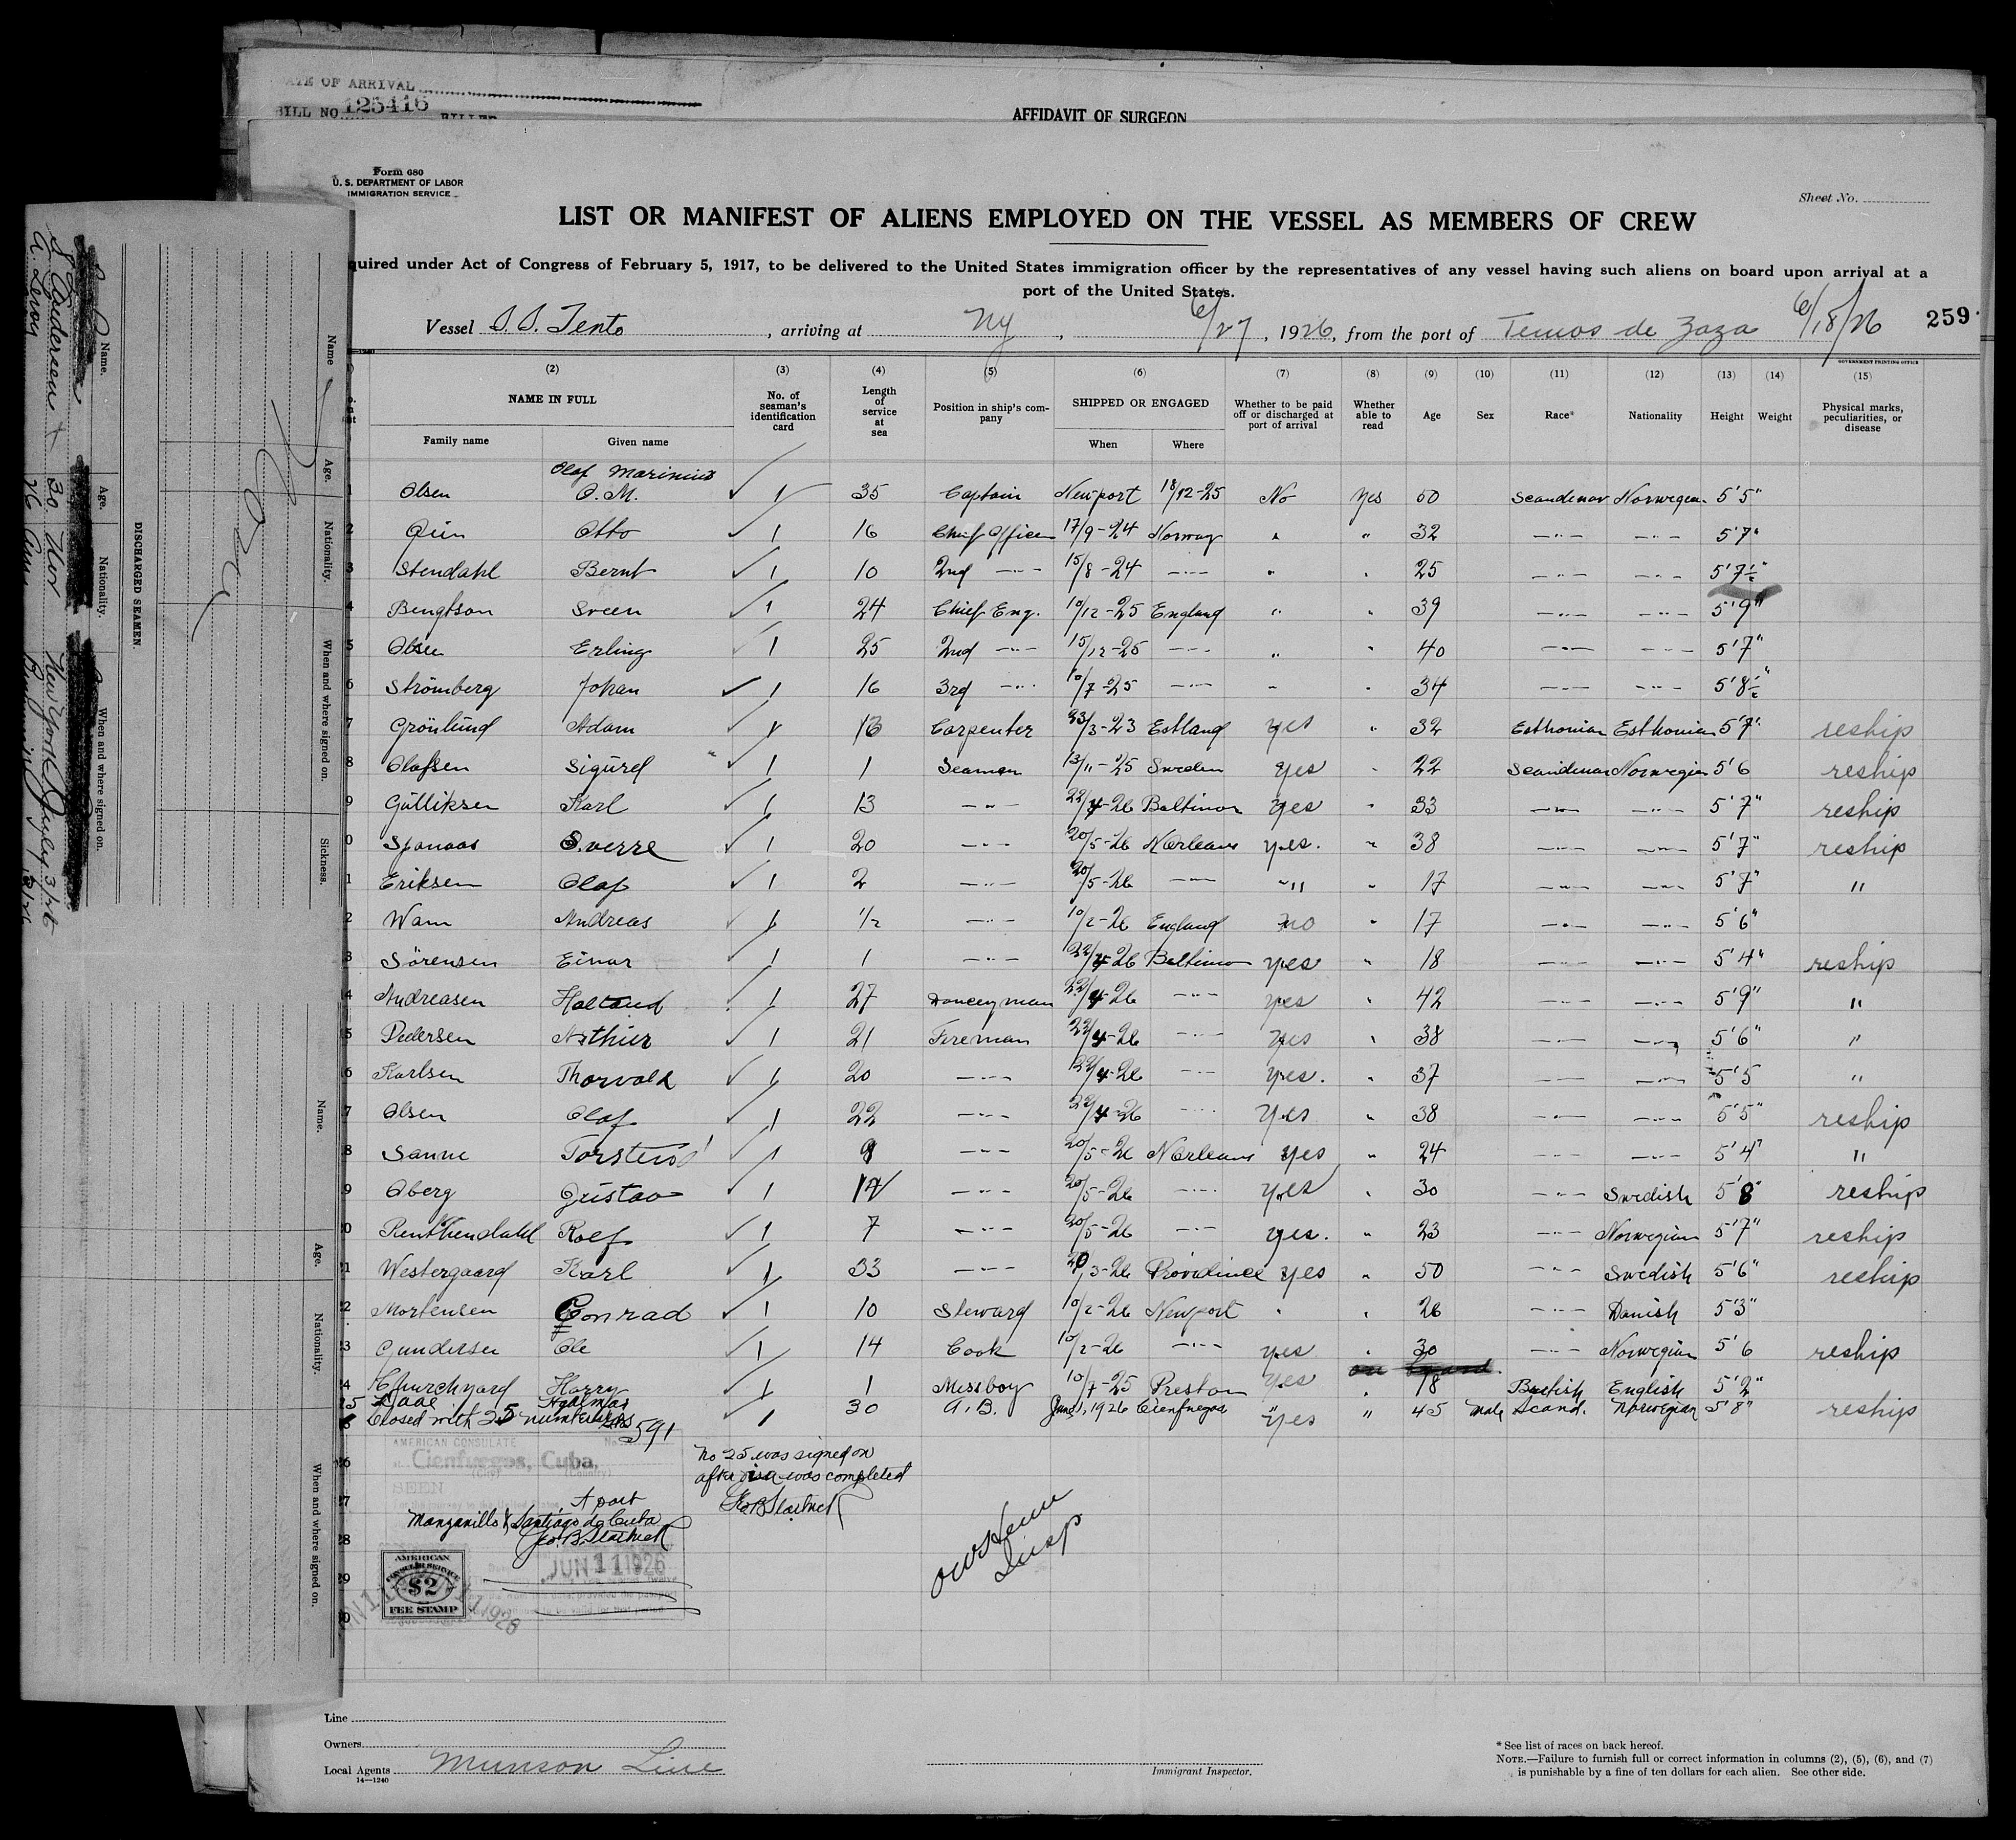 DATE OF ARRIVAL
BILL NO. 125416
AFFIDAVIT OF SURGEON
Form 680
U. S. DEPARTMENT OF LABOR
IMMIGRATION SERVICE
Sheet No.
LIST OR MANIFEST OF ALIENS EMPLOYED ON THE VESSEL AS MEMBERS OF CREW
quired under Act of Congress of February 5, 1917, to be delivered to the United States immigration officer by the representatives of any vessel having such aliens on board upon arrival at a
port of the United States.
Vessel S. S. Tento, arriving at NY, 6/27, 1926, from the port of Tunos de Zaza 6/18/26 259
GOVERNMENT PRINTING OFFICE
(2) (3) (4) (5) (6) (7) (8) (9) (10) (11) (12) (13) (14) (15)
NAME IN FULL No. of seaman's identification card Length of service at sea Position in ship's company SHIPPED OR ENGAGED Whether to be paid off or discharged at port of arrival Whether able to read Age Sex Race* Nationality Height Weight Physical marks, peculiarities, or disease
Family name Given name When Where
Olaf Marinius
1 Olsen O. M. 1 35 Captain Newport 18/12-25 No Yes 50 Scandinav Norwegian 5'5"
2 Otto 1 16 Chief Officer 17/9-24 Norway " " 32 -"- -"- 5'7"
3 Stendahl Bernt 1 10 2nd -"- 15/8-24 -"- " " 25 -"- -"- 5'7½"
4 Bengtson Sveen 1 24 Chief Eng. 10/12-25 England " " 39 -"- -"- 5'9"
5 Olsen Erling 1 25 2nd -"- 15/12-25 -"- " " 40 -"- -"- 5'7"
6 Strömberg Johan 1 16 3rd -"- 10/7-25 -"- " " 34 -"- -"- 5'8½"
7 Grönlund Adam 1 13 Carpenter 23/3-23 Estland yes " 32 Esthonian Esthonian 5'7" reship
8 Olafsen Sigurd 1 1 Seaman 13/11-25 Sweden yes " 22 Scandinav Norwegian 5'6 reship
9 Gulliksen Karl 1 13 -"- 22/4-26 Baltimor yes " 33 -"- -"- 5'7" reship
0 Sjonaas Sverre 1 20 -"- 20/5-26 NOrleans yes. " 38 -"- -"- 5'7" reship
1 Eriksen Olaf 1 2 -"- 20/5-26 -"- " " 17 -"- -"- 5'7" "
2 Wam Andreas 1 ½ -"- 10/2-26 England no " 17 -"- -"- 5'6"
3 Sörensen Einar 1 1 -"- 22/4-26 Baltimo yes " 18 -"- -"- 5'4" reship
4 Andreasen 1 27 Donceyman 22/4-26 -"- yes " 42 -"- -"- 5'9" "
5 Pedersen Arthur 1 21 Fireman 22/4-26 -"- yes " 38 -"- -"- 5'6" "
6 Karlsen Thorvald 1 20 -"- 22/4-26 -"- yes. " 37 -"- -"- 5'5 "
7 Olsen Olaf 1 22 -"- 22/4-26 -"- yes " 38 -"- -"- 5'5" reship
8 Sanne 1 9 -"- 20/5-26 NOrleans yes " 24 -"- -"- 5'4" "
9 Oberg Gustav 1 14 -"- 20/5-26 -"- yes " 30 -"- Swedish 5'8" reship
0 Rolf 1 7 -"- 20/5-26 -"- yes. " 23 -"- Norwegian 5'7" reship
1 Westergaard Karl 1 33 -"- 20/3-26 Providence yes " 50 -"- Swedish 5'6" reship
2 Mortensen Conrad 1 10 Steward 10/2-26 Newport " " 26 -"- Danish 5'3"
3 Gundersen Ole 1 14 Cook 10/2-26 -"- yes " 30 -"- Norwegian 5'6 reship
4 Churchyard Harry 1 1 Messboy 10/7-25 Preston yes " 18 British English 5'2"
5 Hjalmar 1 30 A. B. June 1, 1926 Cienfuegos yes " 45 Male Scand. Norwegian 5'8" reship
Closed with 25 numbers 591
AMERICAN CONSULATE
Cienfuegos, Cuba,
SEEN
No 25 was signed on
after visa was completed
Manzanillo & Santiago de Cuba
JUN 11 1926
AMERICAN
CONSULAR SERVICE
$2
FEE STAMP
Insp
Line
Owners
Local Agents Munson Line
14—1240
Immigrant Inspector.
* See list of races on back hereof.
NOTE.—Failure to furnish full or correct information in columns (2), (5), (6), and (7)
is punishable by a fine of ten dollars for each alien. See other side.
DISCHARGED SEAMEN.
Name. Age. Nationality. When and where signed on.
30 Nor New York July 3/25
A. Leroy 26
Name Age. Nationality. When and where signed on. Sickness.
Name. Age. Nationality. When and where signed on.